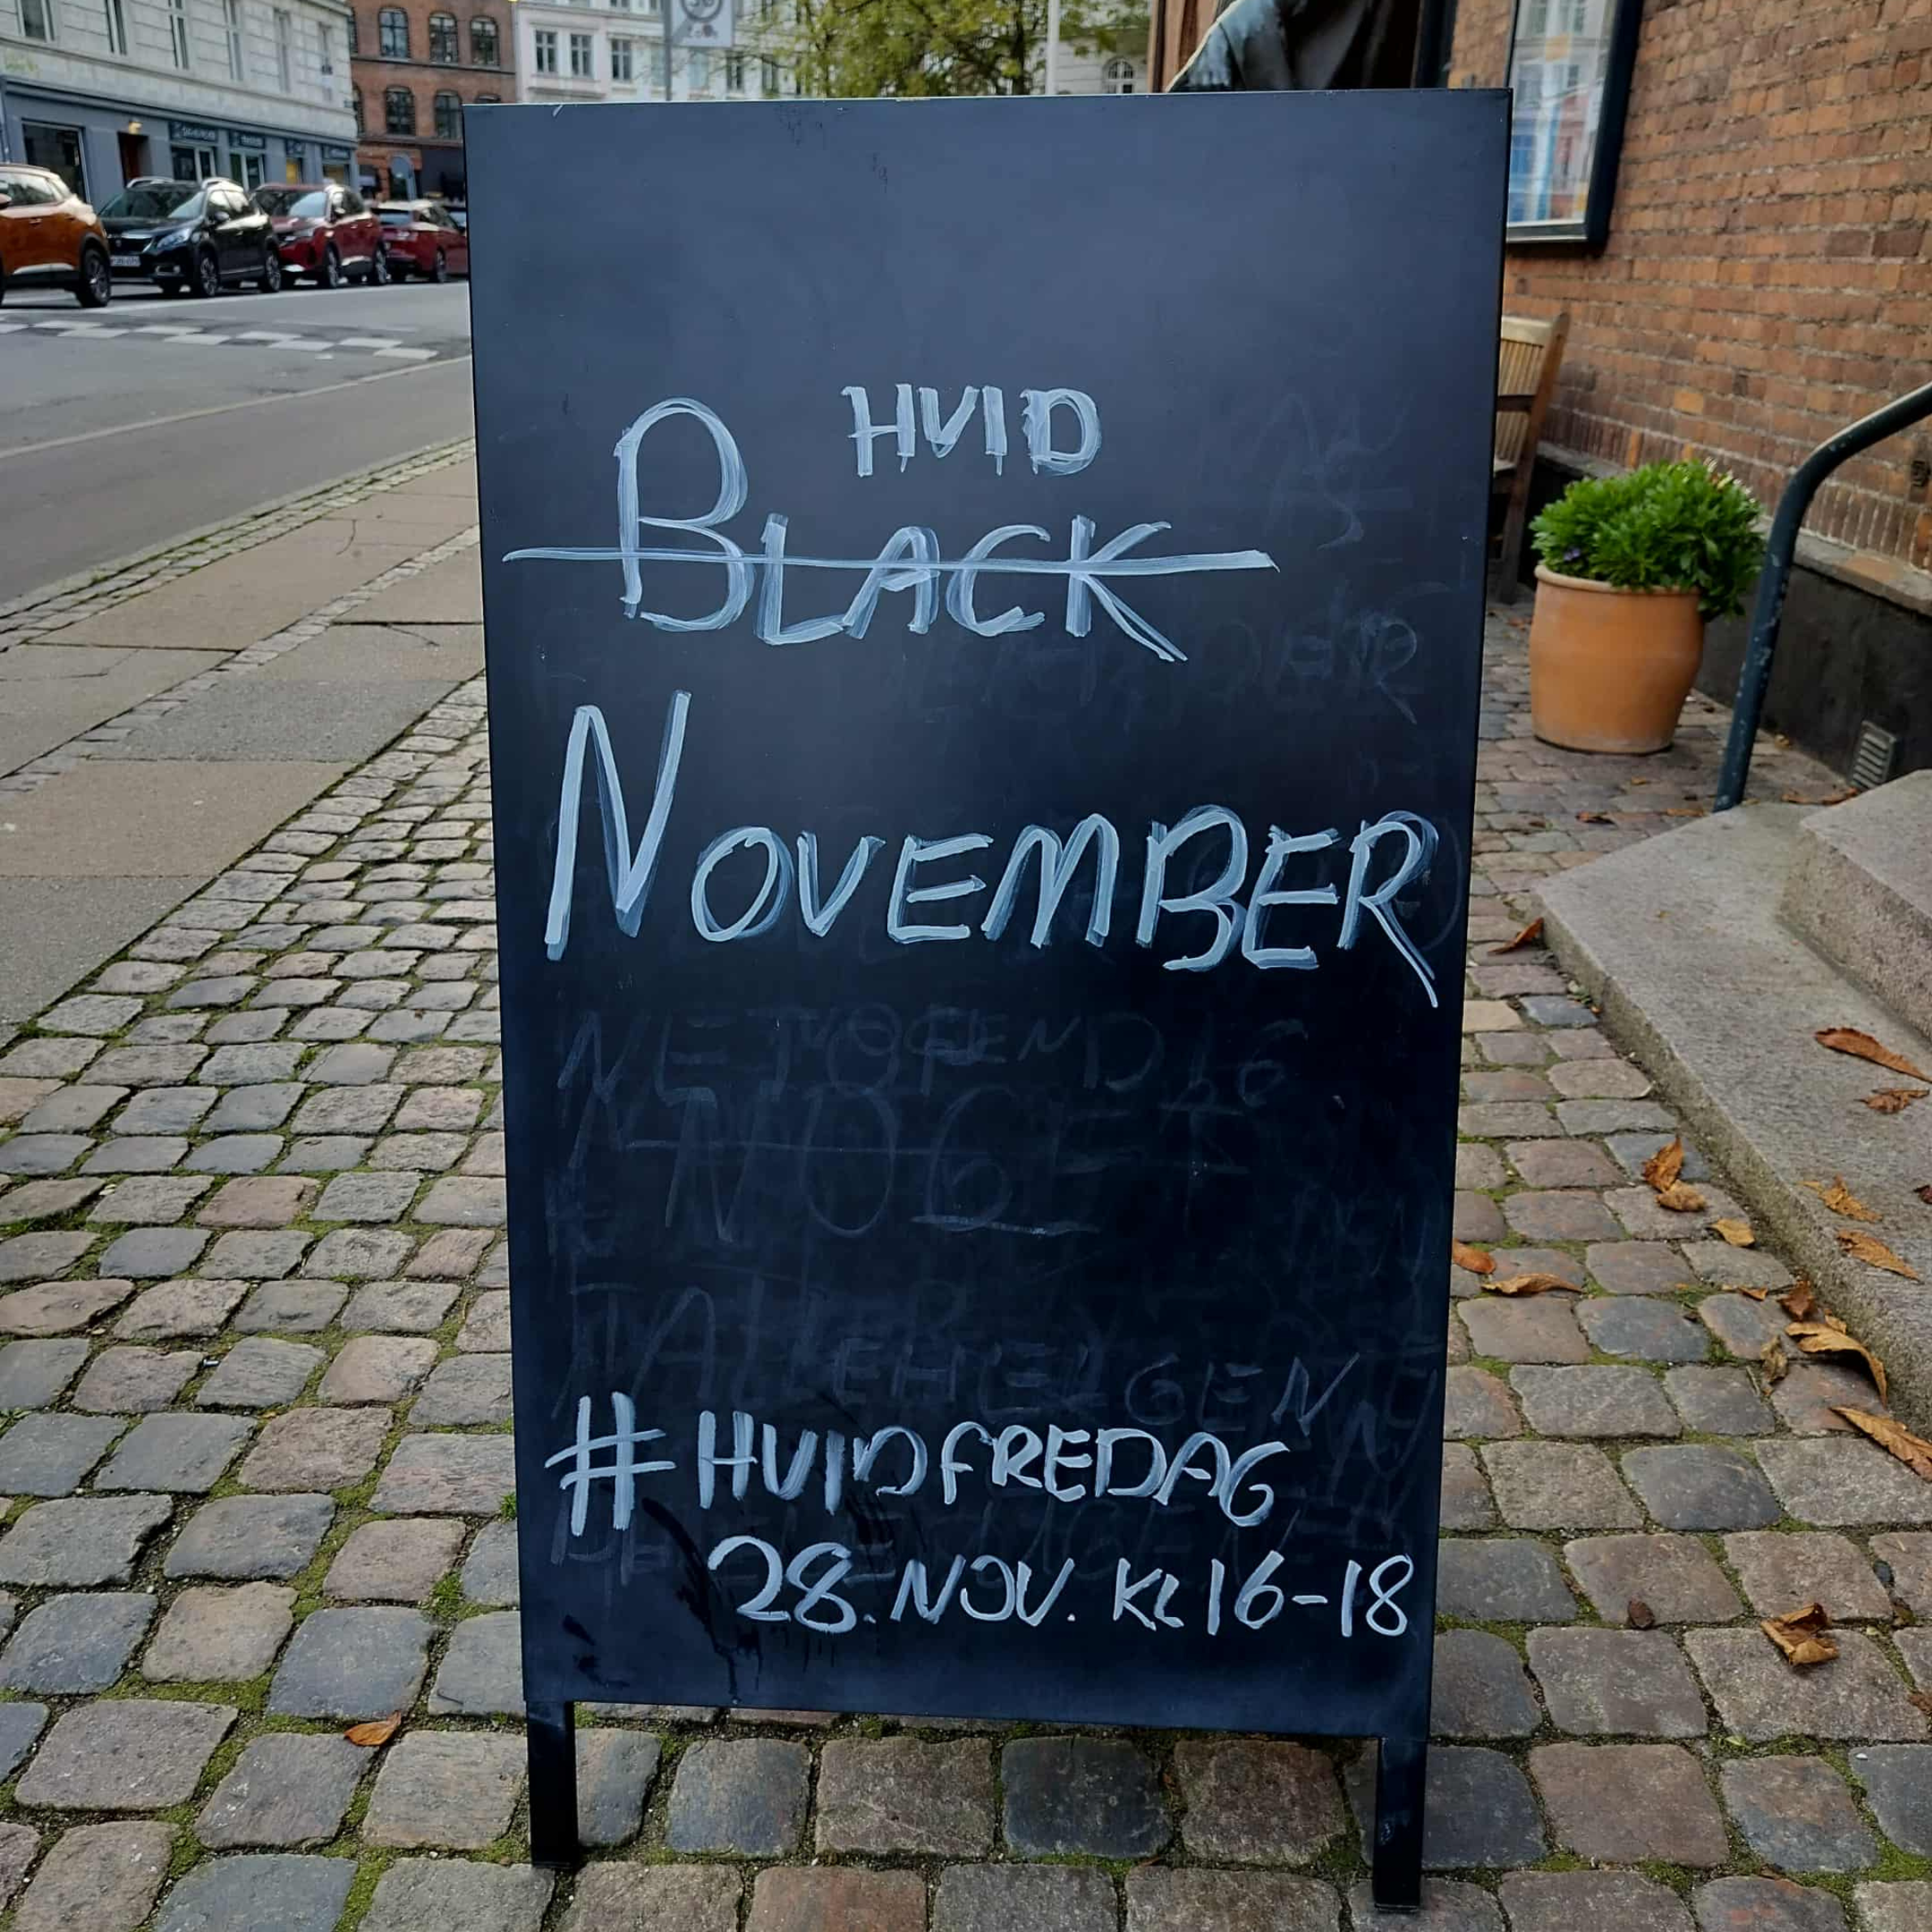 HVID
BLACK
NOVEMBER
#HVIDFREDAG
28. NOV. KL 16-18